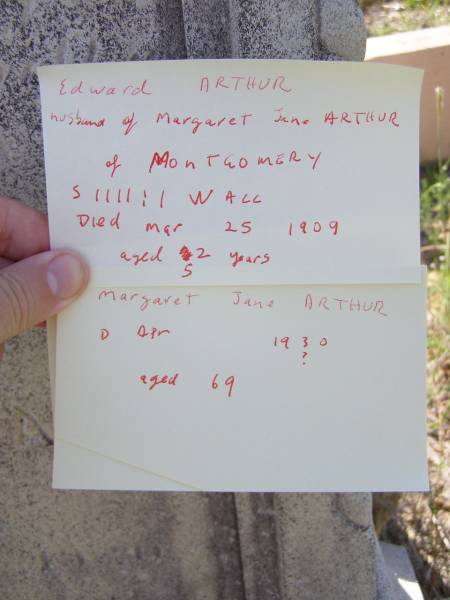 Edward ARTHUR
husband of Margaret Jane ARTHUR
of MONTGOMERY
S ||||!| WALL
Died mar 25 1909
aged 2 years
5
Margaret Jane ARTHUR
D Apr 1930
?
aged 69